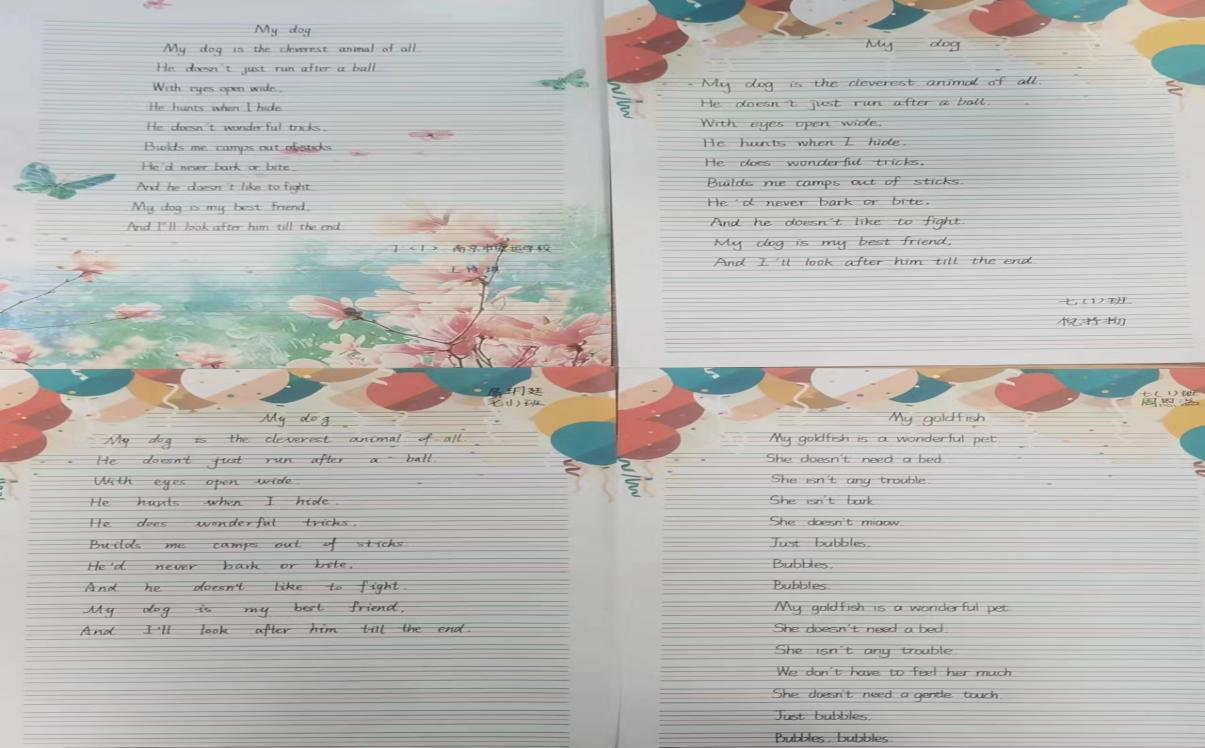 My dog
My dog is the cleverest animal of all.
He doesn't just run after a ball
With eyes open wide.
He hunts when I hide
He doesn't wonderful tricks.
Builds me camps out of sticks
He'd never bark or bite.
And he doesn't like to fight.
My dog is my best friend.
And I'll look after him till the end
7<1> 南京市 学校
My dog
My dog is the cleverest animal of all.
He doesn't just run after a ball.
With eyes open wide.
He hunts when I hide.
He does wonderful tricks.
Builds me camps out of sticks.
He'd never bark or bite.
And he doesn't like to fight.
My dog is my best friend,
And I'll look after him till the end
七(1)班
七(1)班
My dog
My dog is the cleverest animal of all.
He doesn't just run after a ball
With eyes open wide.
He hunts when I hide.
He does wonderful tricks.
Builds me camps out of sticks
He'd never bark or bite.
And he doesn't like to fight.
My dog is my best friend,
And I'll look after him till the end.
七(1)班
周恩浩
My goldfish
My goldfish is a wonderful pet
She doesn't need a bed.
She isn't any trouble.
She isn't bark
She doesn't miaow.
Just bubbles.
Bubbles.
Bubbles.
My goldfish is a wonderful pet
She doesn't need a bed.
She isn't any trouble.
We don't have to feel her much
She doesn't need a gentle touch.
Just bubbles.
Bubbles. bubbles.